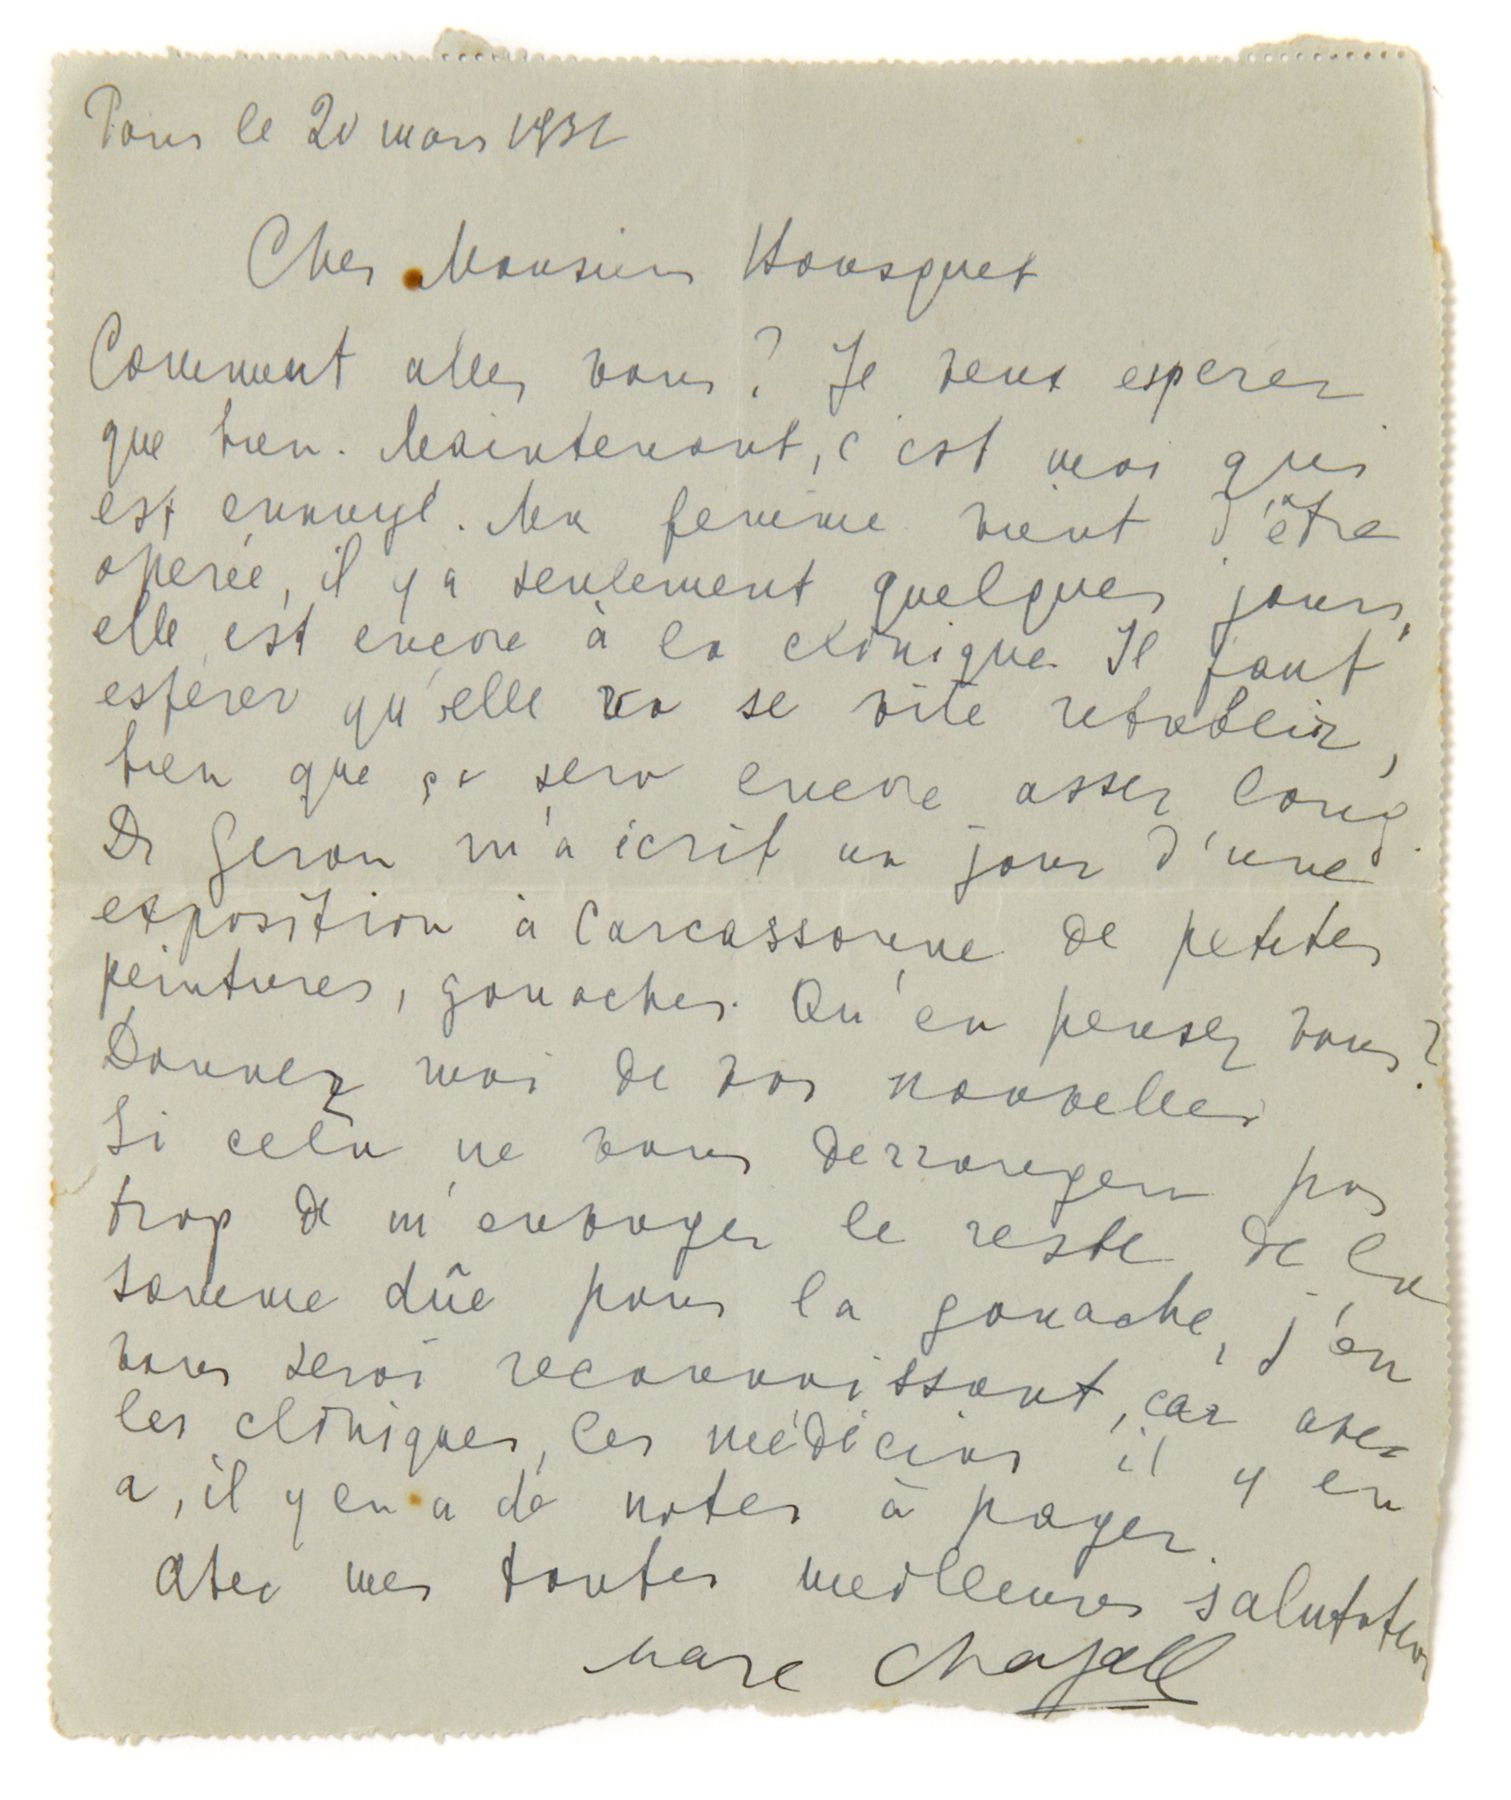 Paris le 20 mars 1931
Cher Monsieur Housquet
Comment allez vous? Je veux esperer
que bien. Maintenant, c'est moi qui
est ennuyé. Ma femme vient d'être
operée, il y a seulement quelques jours,
elle est encore à la clinique. Il faut
esperer qu'elle va se vite retablir,
bien que ça sera encore assez long.
Dr Geron m'a écrit un jour d'une
exposition à Carcassonne de petites
peintures, gouaches. Qu'en pensez vous?
Donnez moi de vos nouvelles
Si cela ne vous derrangera pas
trop de m'envoyer le reste de la
somme dûe pour la gouache, j'en
vous serai reconnaissant, car avec
les cliniques, les médecins il y en
a, il y en a de notes à payer.
Avec mes toutes meilleures salutations
Marc Chagall